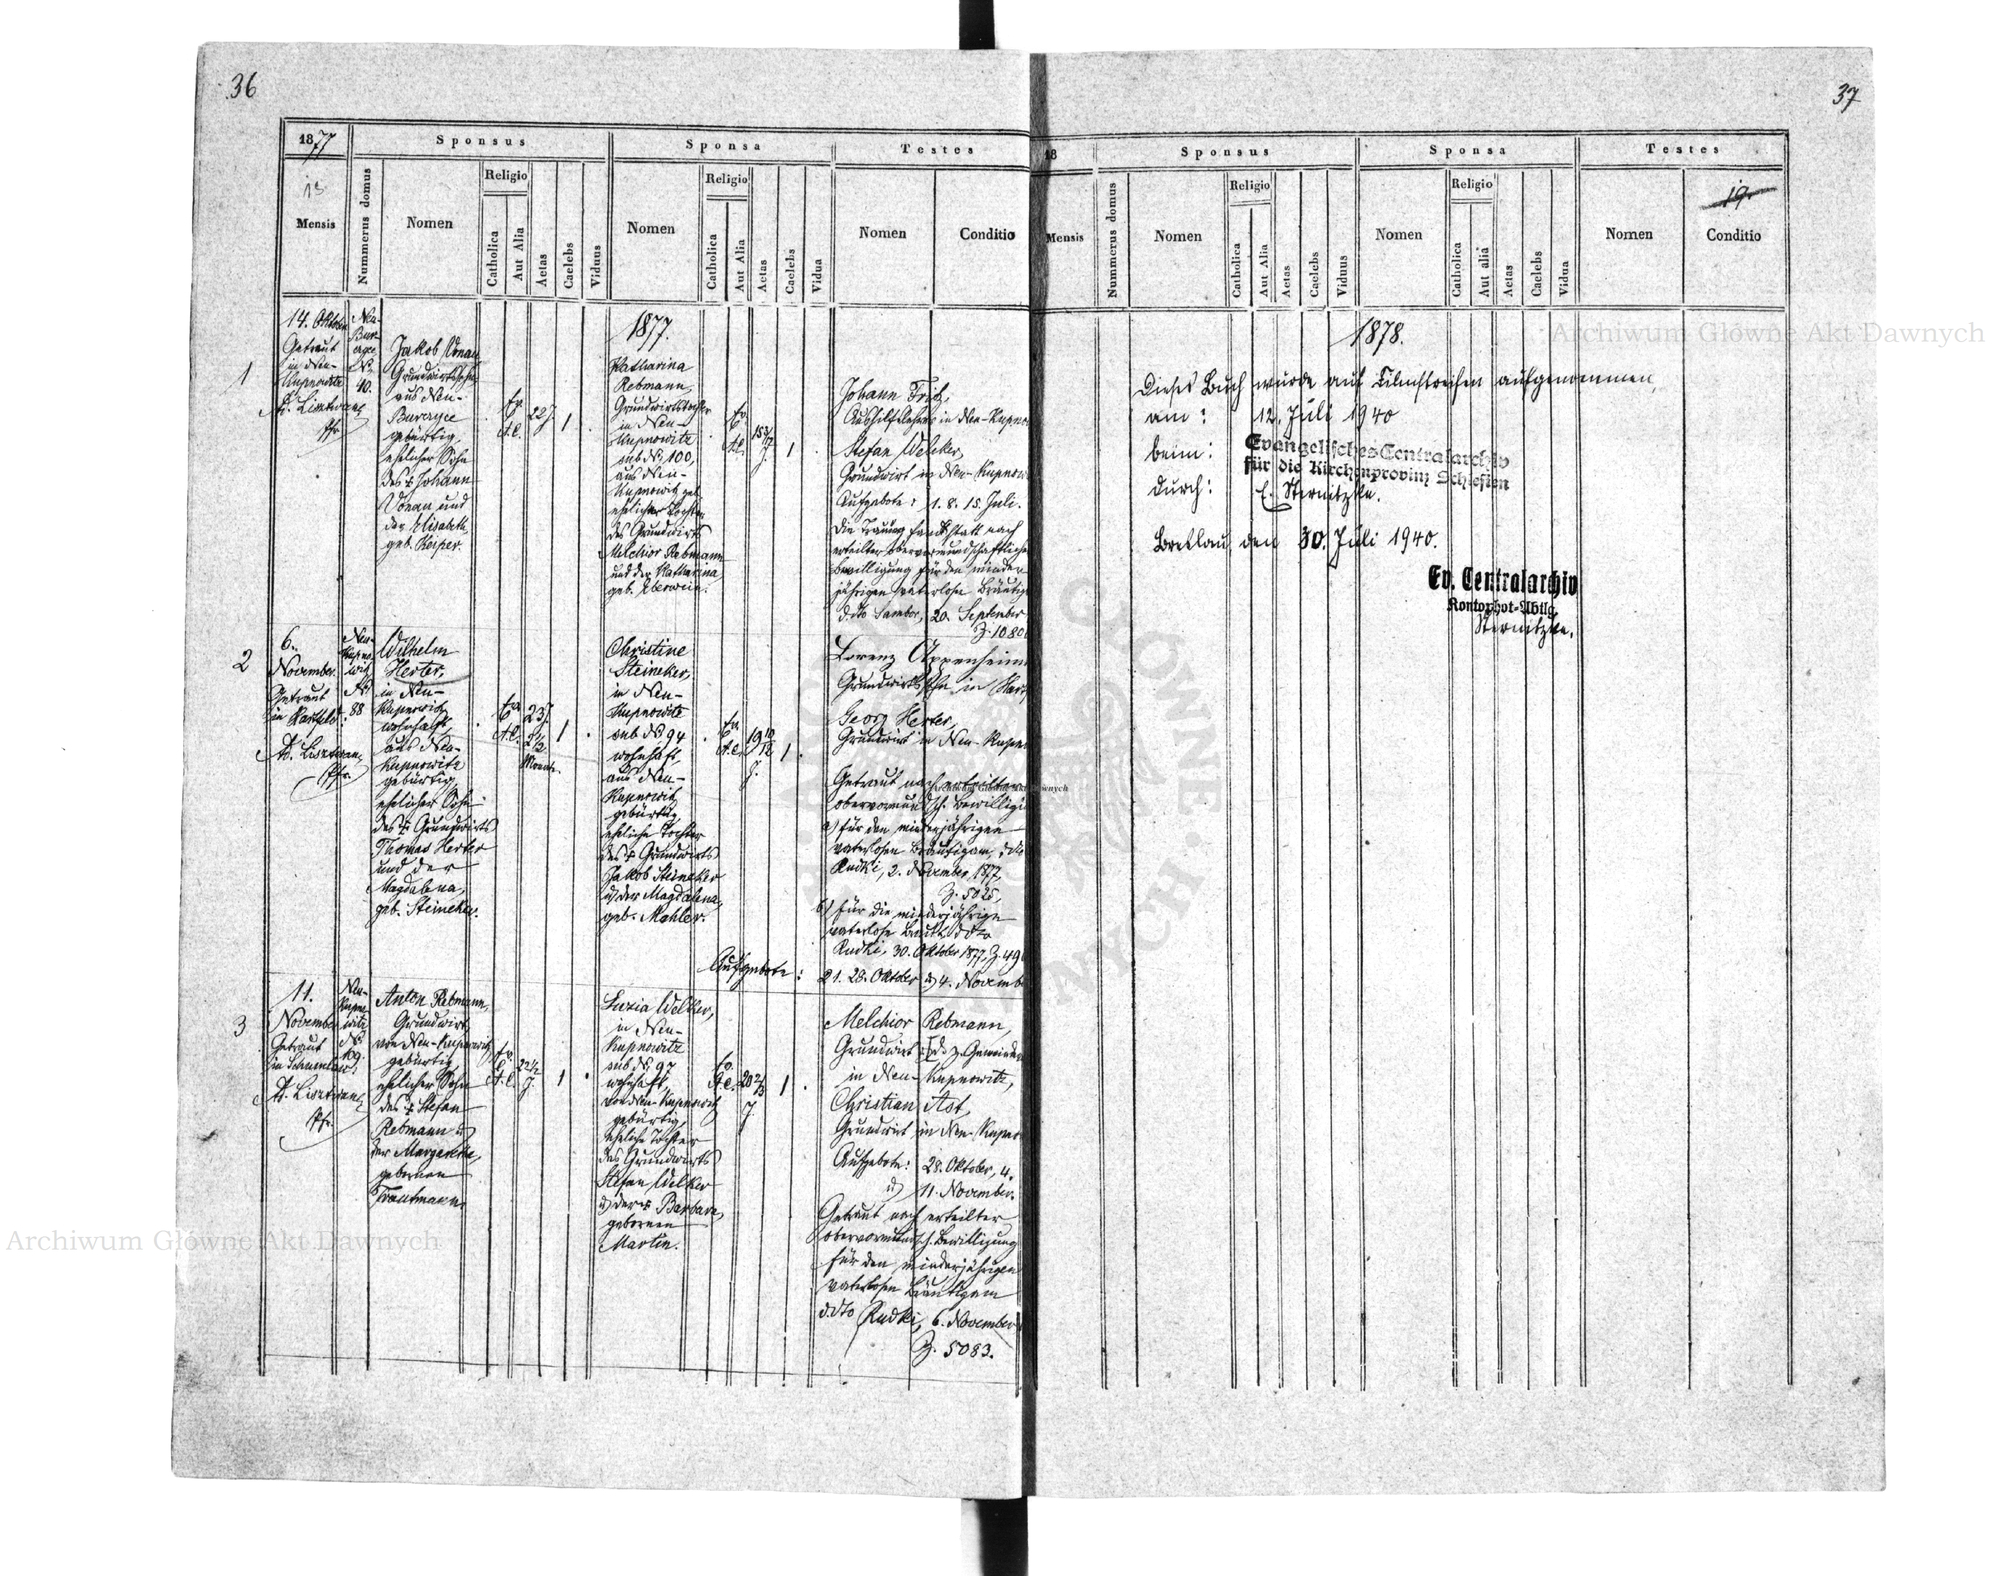 36
37
1877
Sponsus
Sponsa
Testes
13
Mensis
Nummerus domus
Nomen
Religio
Catholica
Aut Alia
Aetas
Caelebs
Viduus
Nomen
Religio
Catholica
Aut Alia
Aetas
Caelebs
Vidua
Nomen
Conditio
1877.
1
14. Oktober
Getraut
in Neu-
Kupnowitz
Pfr.
Neu-
Burczyce
No
40.
Jakob Donau
Grundwirtssohn
aus Neu-
Burczyce
gebürtig,
ehelicher Sohn
des † Johann
Donau und
der Elisabeth,
geb. Keiper.
Ev.
A.C.
22 J.
1
Katharina
Rebmann,
Grundwirtstochter
in Neu-
Kupnowitz
sub No 100,
aus Neu-
Kupnowitz geb.
eheliche Tochter
des Grundwirts
Melchior Rebmann
und der Katharina
geb. Eberwein.
Ev.
A.C.
J.
1
Johann Fritz,
Aushilfslehrer in Neu-Kupno
Stefan Welker,
Grundwirt in Neu-Kupnow
Aufgebote: 1. 8. 15. Juli.
Die Trauung fand statt nach
erteilter obervormundschaftlicher
Bewilligung für den minder-
jährigen vaterlosen Bräutig
ddto Sambor, 20. September
Z. 1080
2
6.
November.
Getraut
in Hartfeld.
Pfr.
Neu-
Kupno-
witz
No
88
Wilhelm
Herter,
in Neu-
Kupnowitz
wohnhaft,
aus Neu-
Kupnowitz
gebürtig,
ehelicher Sohn
des † Grundwirts
Thomas Herter
und der
Magdalena,
geb. Steineker.
Ev.
A.C.
23 J.
2 1/2
Monate.
1
Christine
Steineker,
in Neu-
Kupnowitz
sub No 94
wohnhaft,
aus Neu-
Kupnowitz
gebürtig
eheliche Tochter
des † Grundwirts
Jakob Steineker
u der Magdalena,
geb. Mohler.
Ev.
A.C.
19 10/12
J.
1
Lorenz Oppenheim
Grundwirtssohn in Hart
Georg Herter,
Grundwirt in Neu-Kupn
Getraut nach erteilter
obervormundsch. Bewilligu
a) für den minderjährigen
vaterlosen Bräutigam, ddto
Rudki, 2. November 1877,
Z. 5025,
b) für die minderjährige
vaterlose Braut ddto
Rudki, 30. Oktober 1877, Z. 49
Aufgebote: 21. 28. Oktober u 4. Novemb
3
11.
November
Getraut
Pfr.
Neu-
Kupno-
witz
No
109.
Anton Rebmann,
Grundwirt,
von Neu-Kupnowitz
gebürtig,
ehelicher Sohn
des † Stefan
Rebmann u
der Margaretha,
gebornen
Trautmann
Ev.
A.C.
22 1/2
J.
1
Luzia Welker,
in Neu-
Kupnowitz
sub No 97
wohnhaft,
von Neu-Kupnowitz
gebürtig,
eheliche Tochter
des Grundwirts
Stefan Welker
u der † Barbara,
gebornen
Martin.
Ev.
A.C.
20 2/3
J.
1
Melchior Rebmann,
Grundwirt u d. z. Gemeinde
in Neu-Kupnowitz,
Christian Ast,
Grundwirt in Neu-Kupno
Aufgebote: 28. Oktober, 4.
u 11. November.
Getraut nach erteilter
obervormundsch. Bewilligung
für den minderjährigen
vaterlosen Bräutigam
ddto Rudki, 6. November
Z. 5083.
18
Sponsus
Sponsa
Testes
19.
Mensis
Nummerus domus
Nomen
Religio
Catholica
Aut Alia
Aetas
Caelebs
Viduus
Nomen
Religio
Catholica
Aut aliä
Aetas
Caelebs
Vidua
Nomen
Conditio
1878.
Dieses Buch wurde auf Filmstreifen aufgenommen,
am: 12. Juli 1940
beim: Evangelisches Centralarchiv
für die Kirchenprovinz Schlesien
durch: E. Sternitzke.
Breslau, den 30. Juli 1940.
Ev. Centralarchiv
Kontophot-Abtlg.
Sternitzke.
Archiwum Główne Akt Dawnych
Archiwum Główne Akt Dawnych
Archiwum Główne Akt Dawnych